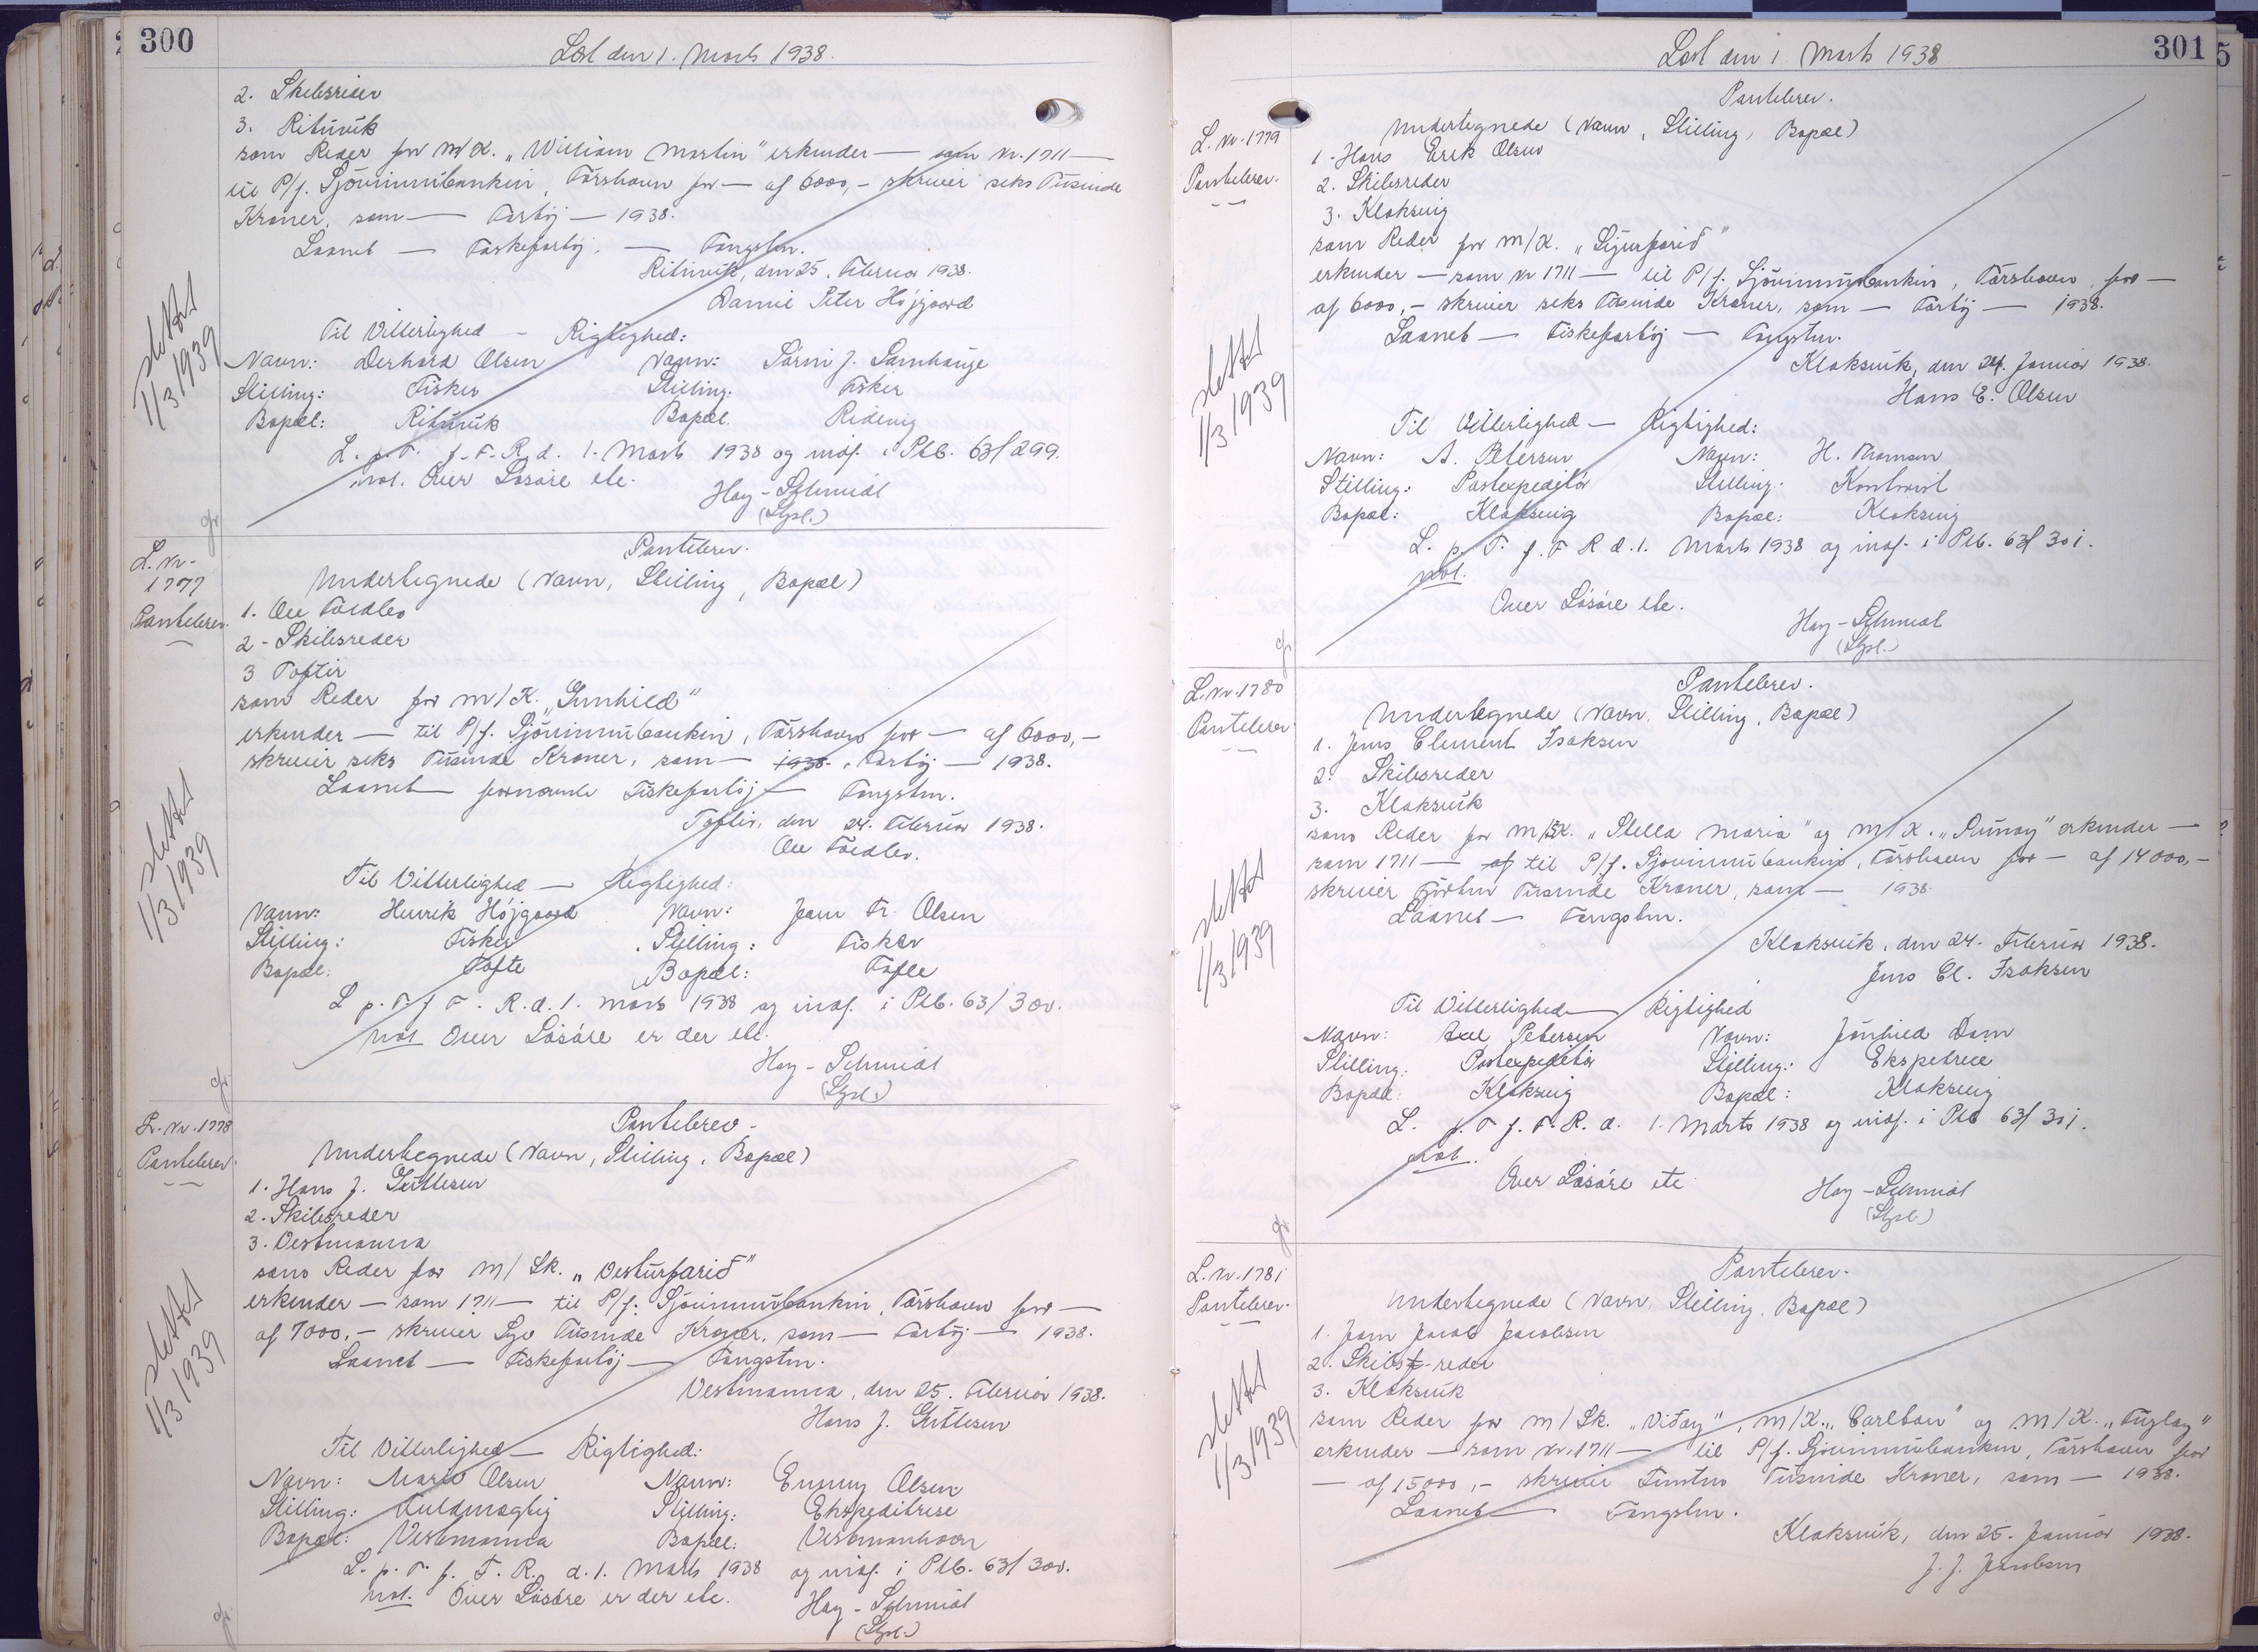 300
Læst den 1. Marts 1938.
2. Skibsreder
3. Rituvik
som Reder for M/K. „William Martin" erkender — som Nr. 1711 —
til P/f. Sjóvinnubankin, Tórshavn for — af 6000,- skriver seks Tusinde
Kroner, som — Fartøj — 1938.
Laanet — Fiskefartøj, — Fangsten.
Rituvik, den 25. Februar 1938.
Daniel Peter Højgaard
Til Vitterlighed — Rigtighed:
Navn: Olsen Navn: J.
Stilling: Fisker Stilling: Fisker
Bopæl: Rituvik Bopæl. Ridevig
L. p. T. f. F. R. d. 1. Marts 1938 og indf. i Ptb. 63/299.
not. Over Løsøre etc.
Hay-Schmidt
slettet
1/3 1939
L. Nr.
1777
Pantebrev.
Pantebrev.
Undertegnede (Navn, Stilling, Bopæl)
1. Ole Toldbo
2 - Skibsreder
3 Toftir
som Reder for M/K. „Gunhild"
erkender — til P/f. Sjóvinnubankin, Tórshavn for — af 6000,-
skriver seks Tusinde Kroner, som — 1938. Fartøj — 1938.
Laanet — fornævnte Fiskefartøj — Fangsten.
Toftir, den 24. Februar 1938.
Til Vitterlighed — Rigtighed:
Navn: Henrik Højgaard Navn: Joen Fr. Olsen
Stilling: Fisker Stilling: Fisker
Bopæl: Tofte Bopæl: Tofte
L. p. T. f. F. R. d. 1. Marts 1938 og indf. i Ptb. 63/300.
not Over Løsøre er der etc.
Hay-Schmidt
slettet
1/3 1939
L. Nr. 1778
Pantebrev.
Pantebrev.
Undertegnede (Navn, Stilling, Bopæl)
1. Hans J. Guttesen
2. Skibsreder
3. Vestmanna
som Reder for M/Sk. „Vesturfarið"
erkender — som 1711 — til P/f. Sjóvinnubankin, Tórshavn for —
af 7000,- skriver Syv Tusinde Kroner, som — Fartøj — 1938.
Laanet — Fiskefartøj — Fangsten.
Vestmanna, den 25. Februar 1938.
Hans J. Guttesen
Til Vitterlighed — Rigtighed:
Navn: Olsen Navn: Emmy Olsen
Stilling: Fuldmægtig Stilling: Ekspeditrise
Bopæl: Vestmanna Bopæl: Vestmanhavn
L. p. T. f. F. R. d. 1. Marts 1938 og indf. i Ptb. 63/300.
not. Over Løsøre er der etc.
Hay-Schmidt
slettet
1/3 1939
301
Læst den 1 Marts 1938
L. Nr. 1779
Pantebrev.
Pantebrev.
Undertegnede (Navn, Stilling, Bopæl)
1. Hans Erik Olsen
2. Skibsreder
3. Klaksvig
som Reder for M/K. „Sigurfarið"
erkender — som Nr 1711 — til P/f. Sjóvinnubankin, Tórshavn, for —
af 6000,- skriver seks Tusinde Kroner, som — Fartøj — 1938.
Laanet — Fiskefartøj — Fangsten.
Klaksvik, den 24. Januar 1938.
Hans E. Olsen
Til Vitterlighed — Rigtighed:
Navn: A. Petersen Navn: H. Thomsen
Stilling: Postexpeditør Stilling: Kontorist
Bopæl: Klaksvig Bopæl: Klaksvig
L. p. T. f. F. R. d. 1. Marts 1938 og indf. i Ptb. 63/301.
not.
Over Løsøre etc.
Hay-Schmidt
slettet
1/3 1939
L. Nr. 1780
Pantebrev
Pantebrev.
Undertegnede (Navn, Stilling, Bopæl)
1. Jens Clement Isaksen
2. Skibsreder
3. Klaksvik
som Reder for M/SK. „Stella Maria" og M/K. erkender —
som 1711 — af til P/f. Sjóvinnubankin, Tórshavn for — af 14000,-
skriver fjorten Tusinde Kroner, som — 1938.
Laanet — Fangsten.
Klaksvik, den 24. Februar 1938.
Jens Cl. Isaksen
Til Vitterlighed — Rigtighed
Navn: Axel Petersen Navn: Jónhild Dam
Stilling: Postexpeditør Stilling: Ekspedrice
Bopæl: Klaksvig Bopæl: Klaksvig
L. p. T. f. F. R. d. 1. Marts 1938 og indf. i Ptb 63/301.
not.
Over Løsøre etc
Hay-Schmidt
slettet
1/3 1939
L. Nr. 1781
Pantebrev.
Pantebrev.
Undertegnede (Navn, Stilling, Bopæl)
1. Joen Jacob Jacobsen
2. Skibs-reder
3. Klaksvik
som Reder for M/Sk. „Viðoy", M/K. „Carlton" og M/K. „Fugloy"
erkender — som Nr. 1711 — til P/f. Sjóvinnubankin, Tórshavn for
— af 15000,- skriver Femten Tusinde Kroner, som — 1938.
Laanet — Fangsten.
Klaksvik, den 25. Januar 1938.
J. J. Jacobsen
slettet
1/3 1939